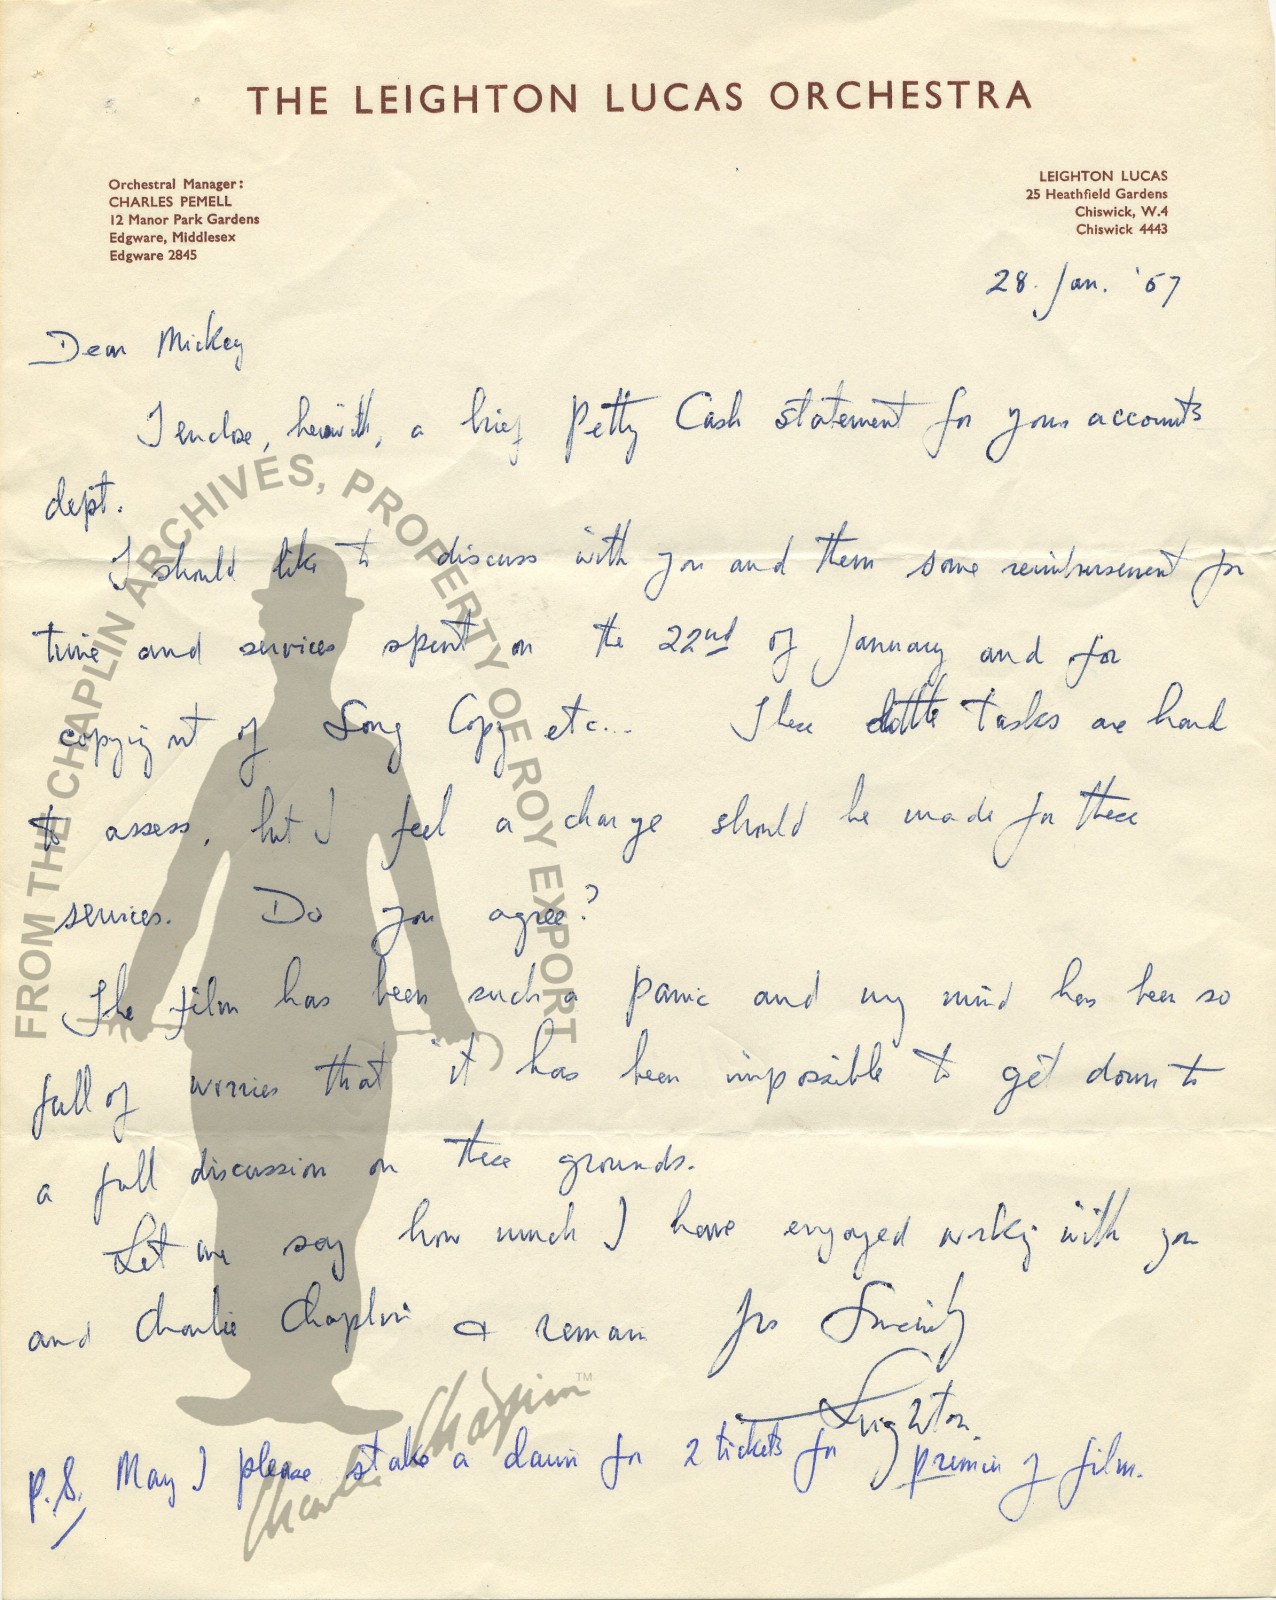 THE LEIGHTON LUCAS ORCHESTRA
Orchestral Manager:
CHARLES PEMELL
12 Manor Park Gardens
Edgware, Middlesex
Edgware 2845
LEIGHTON LUCAS
25 Heathfield Gardens
Chiswick, W.4
Chiswick 4443
28. Jan. '67
Dear Mickey
I enclose, herewith, a brief Petty Cash statement for your accounts
dept.
I should like to discuss with you and them some reimbursement for
time and services spent on the 22nd of January and for
copying out of Song Copy etc...  These little tasks are hard
to assess, but I feel a charge should be made for these
services. Do you agree?
The film has been such a panic and my mind has been so
full of worries that it has been impossible to get down to
a full discussion on these grounds.
Let me say how much I have enjoyed working with you
and Charlie Chaplin & remain Yrs Sincerely
Leighton.
P.S. May I please stake a claim for 2 tickets for premier of film.
FROM THE CHAPLIN ARCHIVES, PROPERTY OF ROY EXPORT
Charlie Chaplin TM